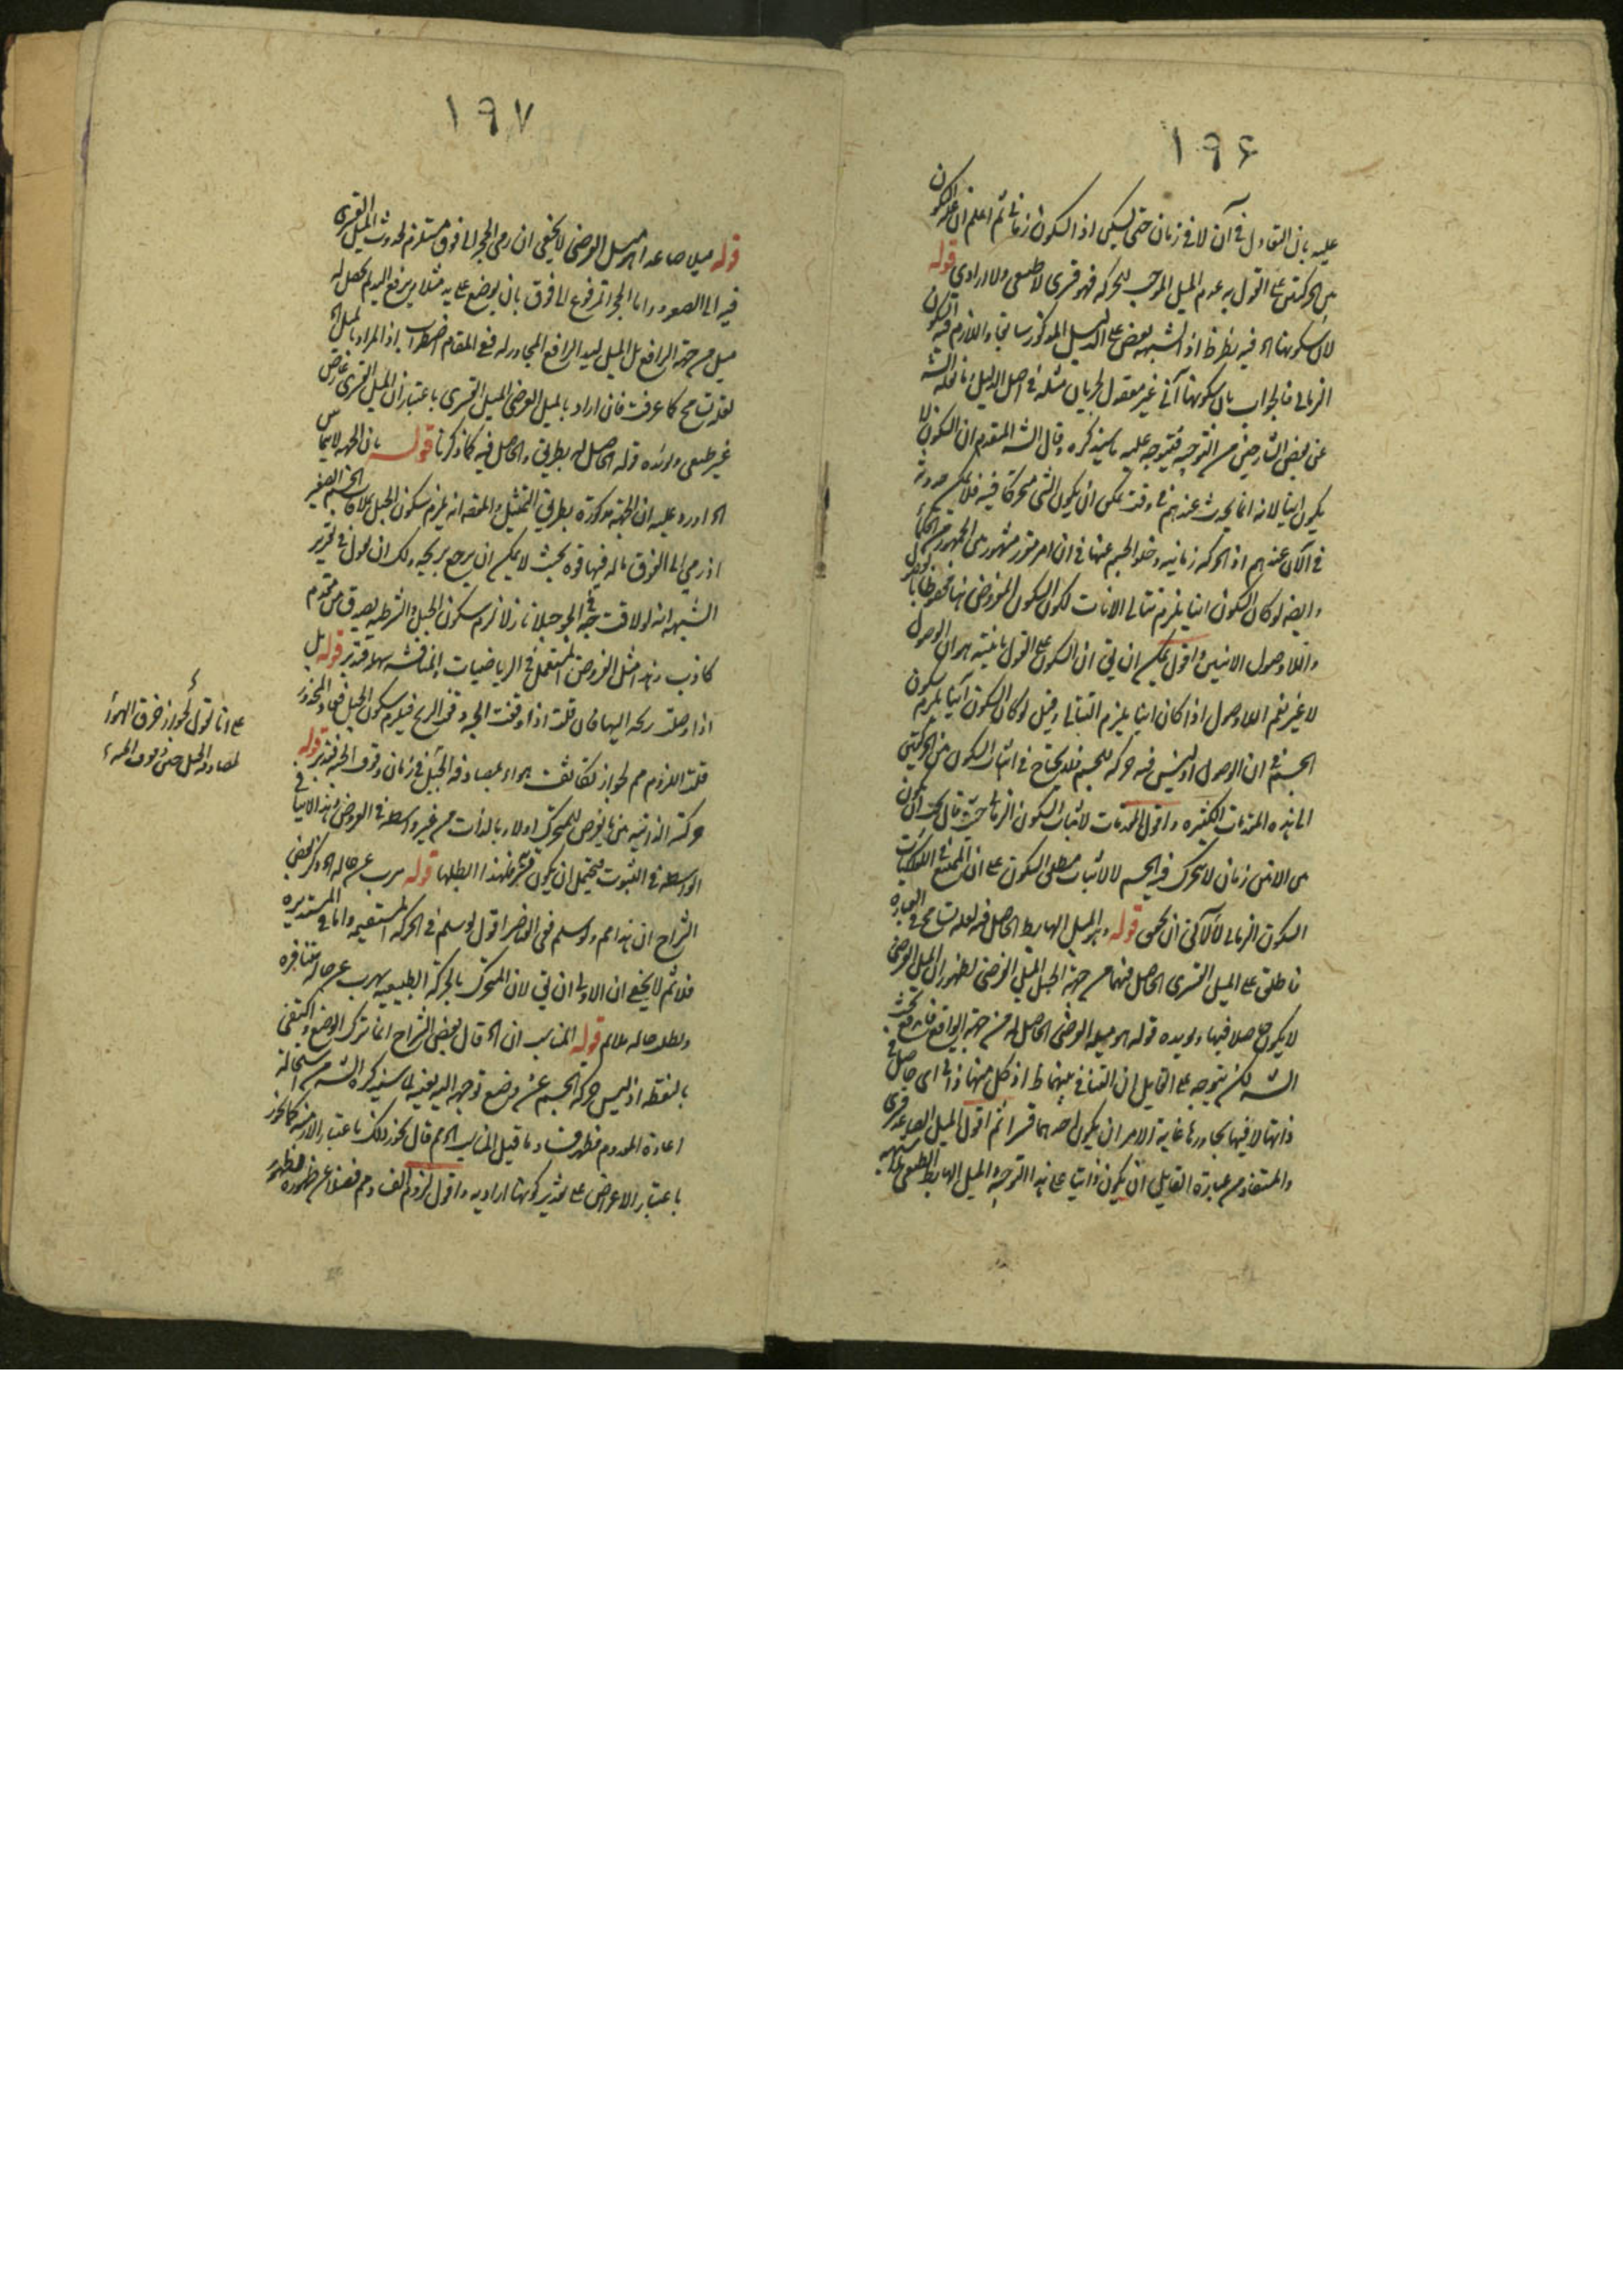 ١٩۶
عليه بان التعادل في آن لا في زمان حتى يسكن اذ السكون زماني ثم اعلم ان علة السكون
بين الحركتين على القول به عدم الميل الموجب للحركة فهو قسرى لا طبيعى ولا ارادى قوله
لان سكونها اه فيه نظر ظ اذ الشبهه نقض على الدليل المذكور سابقا واللازم فيه السكون
الزمانى فالجواب بان سكونها آنى غير معقول لجريان مثله في اصل الدليل وما نقله الش
عن بعض الشارحين من التوجيه فيتوجه عليه ما سيذكره وقال الش المقدم ان السكون لا
يكون انيا لانه انما يحدث عندهم في وقت يمكن ان يكون الشى متحركا فيه فلا يمكن حدوثه
في الآن عندهم اذ الحركة زمانيه وخلو الجسم عنها في ان امر مقرر مشهور بين الجمهور من الحكماء
وايضه لو كان السكون انيا يلزم تتالى الانات لكون السكون المفروض بينا محفوظا بانى الوصول
واللاوصول الانيين واقول يمكن ان يق ان السكون على القول بانيته هو ان الوصول
لا غير نعم اللاوصول اذا كان انيا يلزم التتالى وقيل لو كان السكون آنيا يلزم سكون
الجسم في ان الوصول اذ ليس فيه حركة للجسم فلا يحتاج في اثبات السكون بين الحركتين
الى هذه المقدمات الكثيره واقول المقدمات لاثبات السكون الزمانى حيث قال يجب ان يكون
بين الانين زمان لا يتحرك فيه الجسم لا لاثبات مطلق السكون على ان الممتنع في الفلكيات
السكون الزمانى لا الآنى ان تحقق قوله وهو الميل الهابط الحاصل فيه لعله تسامح في العبارة
فاطلق على الميل القسرى الحاصل فيها من جهة الجبل الميل العرضى لظهور ان الميل العرضى
لا يكون حاصلا فيها ويؤيده قوله هو ميله العرضى الحاصل له من جهة الدافع فاندفع بحث
الش لكن يتوجه على القايل ان التنافى بينهما ظ اذ كل منهما ذاتى اى حاصل في
ذاتها لا فيها يجاورها غاية الامر ان يكون احدهما قسرا ثم اقول الميل الصاعد قسرى
والمستفاد من عبارة القايل ان يكون ذاتيا على هذا التوجيه والميل الهابط الطبيعى
١٩٧
قوله ميلا صاعدا هو ميل العرضى لا يخفى ان رمى الحجر الى فوق مستلزم لحدوث الميل القسرى
فيه الى الصعود واما الحجر المرفوع الى فوق بان يوضع على يد مثلا ويرفع اليد لم يحصل له
ميل من جهة الرافع بل الميل ليد الرافع المجاور له ففى المقام اضطراب اذ المراد بالميل اه
لعله تسامح كما عرفت فان اراد بالميل العرضى الميل القسرى باعتبار ان الميل القسرى عارض
غير طبيعى ويؤيده قوله الحاصل له بطريق والحاصل فيه كما ذكرنا قوله بان الحبه لا يماس
اه اورد عليه ان الحبة مذكورة بطريق التمثيل والمقصه انه يلزم سكون الجبل بملاقات الجسم الصغير
اذ رمى الى الفوق ما له فيها قوة بحيث لا يمكن ان يرجع بريحه ولك ان تقول في تقرير
الشبهه انه لو لاقت حبه في الجو جبلا نازلا لزم سكون الجبل والشرطيه يصدق من مقدم
كاذب وهذا مثل الفروض المستعمل في الرياضيات والمناقشه سهله فتدبر قوله بل
اذا وصلت ريحه اليها فان قلت اذا وقفت الحبه وقف الريح فيلزم سكون الجبل فعاد المحذور
قلت اللزوم مم لجواز تكاثف هواء بمصادفه الجبل في زمان وقوف الحبه فتدبر قوله
حركته الذاتيه هى ما يعرض للمتحرك اولا وبالذات من غير واسطه في العروض وهذا لا ينافى
الواسطه في الثبوت فيحتمل ان يكون قسريه فلهذا ابطلها قوله هرب عن حاله اه ذكر بعض
الشراح ان هذا مم ولو سلم ففى الدفع اقول لو سلم في الحركه المستقيمه واما في المستديره
فلا ثم لا يخفى ان الاولى ان يق لان المتحرك بالحركه الطبيعيه يهرب عن حاله متنافره
ويطلب حاله ملائم قوله المناسب ان اه قال بعض الشراح انما ترك الوضع واكتفى
بالنقطه اذ ليس حركه الجسم عن وضع توجهه اليه بعينه لما سيذكره الش من استحالة
اعادة المعدوم فظهر فساد ما قيل المناسب اه ثم قال يجوز ذلك باعتبار الازمنه كما يجوز
باعتبار الاعراض على تقدير كونها اراديه واقول لزوم الفساد مم فضلا عن ظهوره
على انا نقول يجوز خرق الهواء
بمصادمة الجبل حين وقوف الحبه